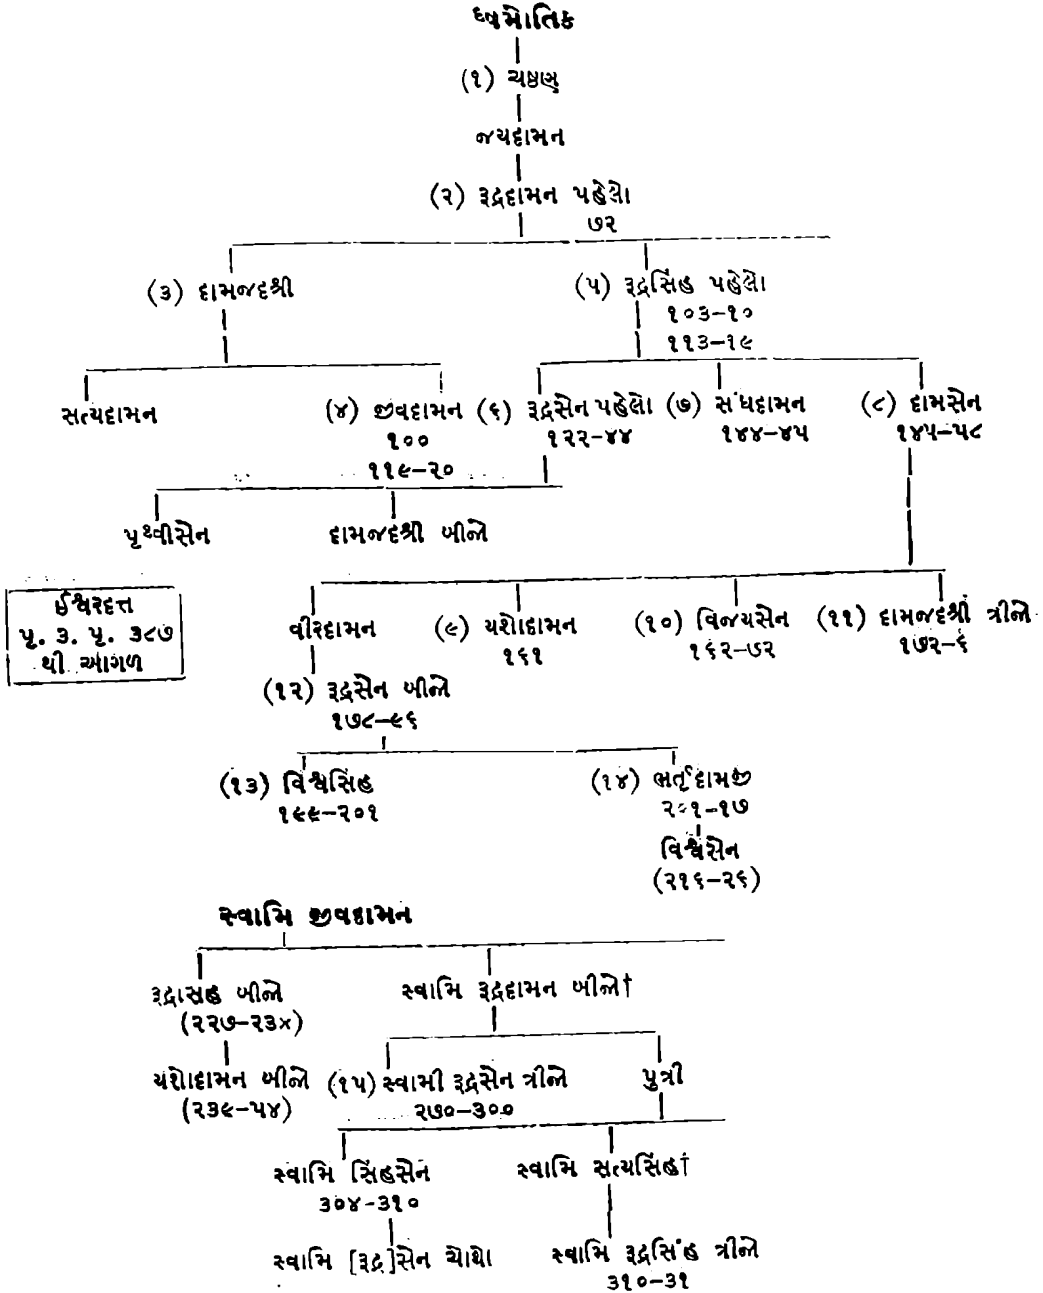 ઘ્સમોતિક
(૧) ચષ્ટણ
જયદામન
(૨) રૂદ્રદામન પહેલો
૭૨
(૩) દામજદશ્રી
(૫) રૂદ્રસિંહ પહેલો
૧૦૩–૧૦
૧૧૩–૧૯
સત્યદામન
(૪) જીવદામન
૧૦૦
૧૧૯–૨૦
(૬) રૂદ્રસેન પહેલો
૧૨૨–૪૪
(૭) સંઘદામન
૧૪૪–૪૫
(૮) દામસેન
૧૪૫–૫૮
પૃથ્વીસેન
દામજદશ્રી બીજો
ઈશ્વરદત્ત
પૃ. ૩. પૃ. ૩૮૭
થી આગળ
વીરદામન
(૯) યશોદામન
૧૬૧
(૧૦) વિજયસેન
૧૬૨–૭૨
(૧૧) દામજદશ્રી ત્રીજો
૧૭૨–૬
(૧૨) રૂદ્રસેન બીજો
૧૭૮–૯૬
(૧૩) વિશ્વસિંહ
૧૯૯–૨૦૧
(૧૪) ભર્તૃદામજી
૨૦૧–૧૭
વિશ્વસેન
(૨૧૬–૨૬)
સ્વામિ જીવદામન
રૂદ્રાસહ બીજો
(૨૨૭–૨૩×)
સ્વામિ રૂદ્રદામન બીજો†
યશોદામન બીજો
(૨૩૯–૫૪)
(૧૫) સ્વામી રૂદ્રસેન ત્રીજો
૨૭૦–૩૦૦
પુત્રી
સ્વામિ સિંહસેન
૩૦૪–૩૧૦
સ્વામિ સત્યસિંહ†
સ્વામિ [રૂદ્ર]સેન ચોથો
સ્વામિ રૂદ્રસિંહ ત્રીજો
૩૧૦–૩૧